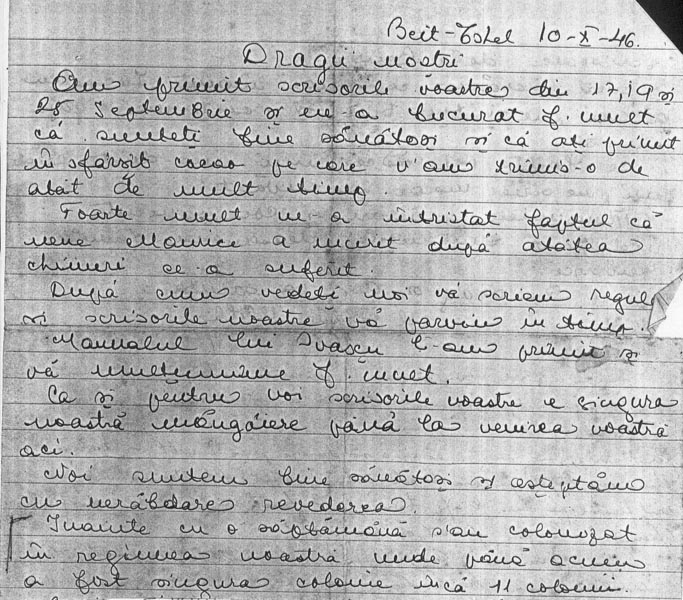 Beit-Eshel 10-X-46.
Dragii noștri
Am primit scrisorile voastre din 17, 19 și
28 Septembrie și ne-a bucurat f. mult
că sunteți bine sănătoși și că ați primit
în sfârșit cacao pe care v'am trimis-o de
atât de mult timp.
Foarte mult m-a întristat faptul că
nene Maurice a murit după atâtea
chinuri ce-a suferit.
După cum vedeți noi vă scriem regul
și scrisorile noastre vă parvin în timp.
Manualul lui l-am primit și
vă mulțumim f. mult.
Ca și pentru voi scrisorile voastre e singura
noastră mângâiere până la venirea voastră
aci.
Noi suntem bine sănătoși și așteptăm
cu nerăbdare revederea.
Inainte cu o săptămână s'au colonizat
în regiunea noastră unde până acum
a fost singura colonie încă 11 colonii.